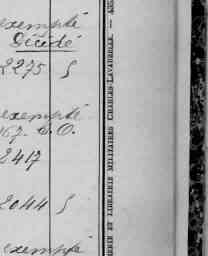 exempté
Décédé
2275 S
exempté
167. C.O.
2417
2044 S
exempté
ERIE ET LIBRAIRIE MILITAIRES CHARLES-LAVAUZELLE. —